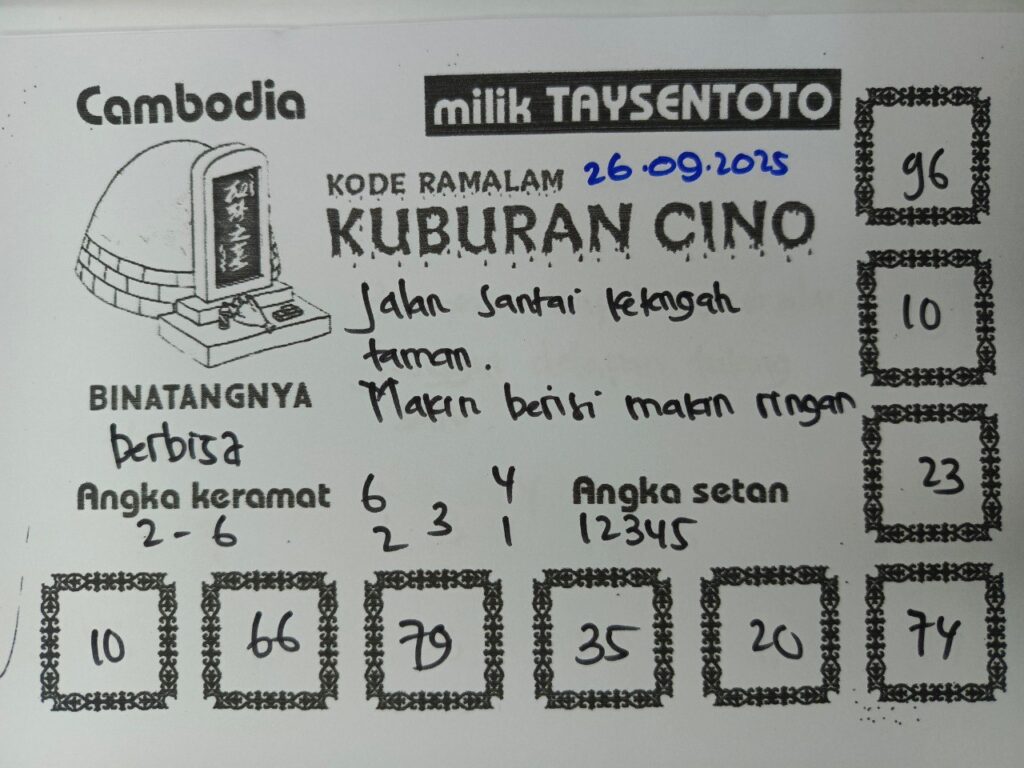 Cambodia
milik TAYSENTOTO
KODE RAMALAM 26.09.2025
KUBURAN CINO
Jalan Santai ketengah
taman.
Makin berisi makin ringan
BINATANGNYA
berbisa
Angka keramat
2 - 6
6 4
3
2 1
Angka setan
12345
96
10
23
10 66 79 35 20 74